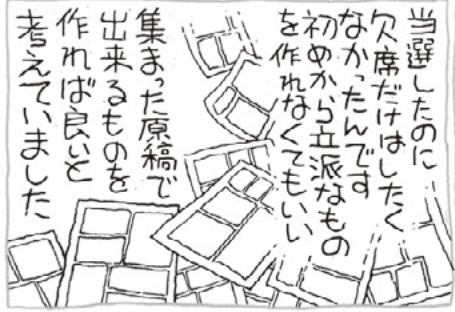 当選したのに
欠席だけはしたく
なかったんです
初めから立派なもの
を作れなくてもいい
集まった原稿で
出来るものを
作れば良いと
考えていました